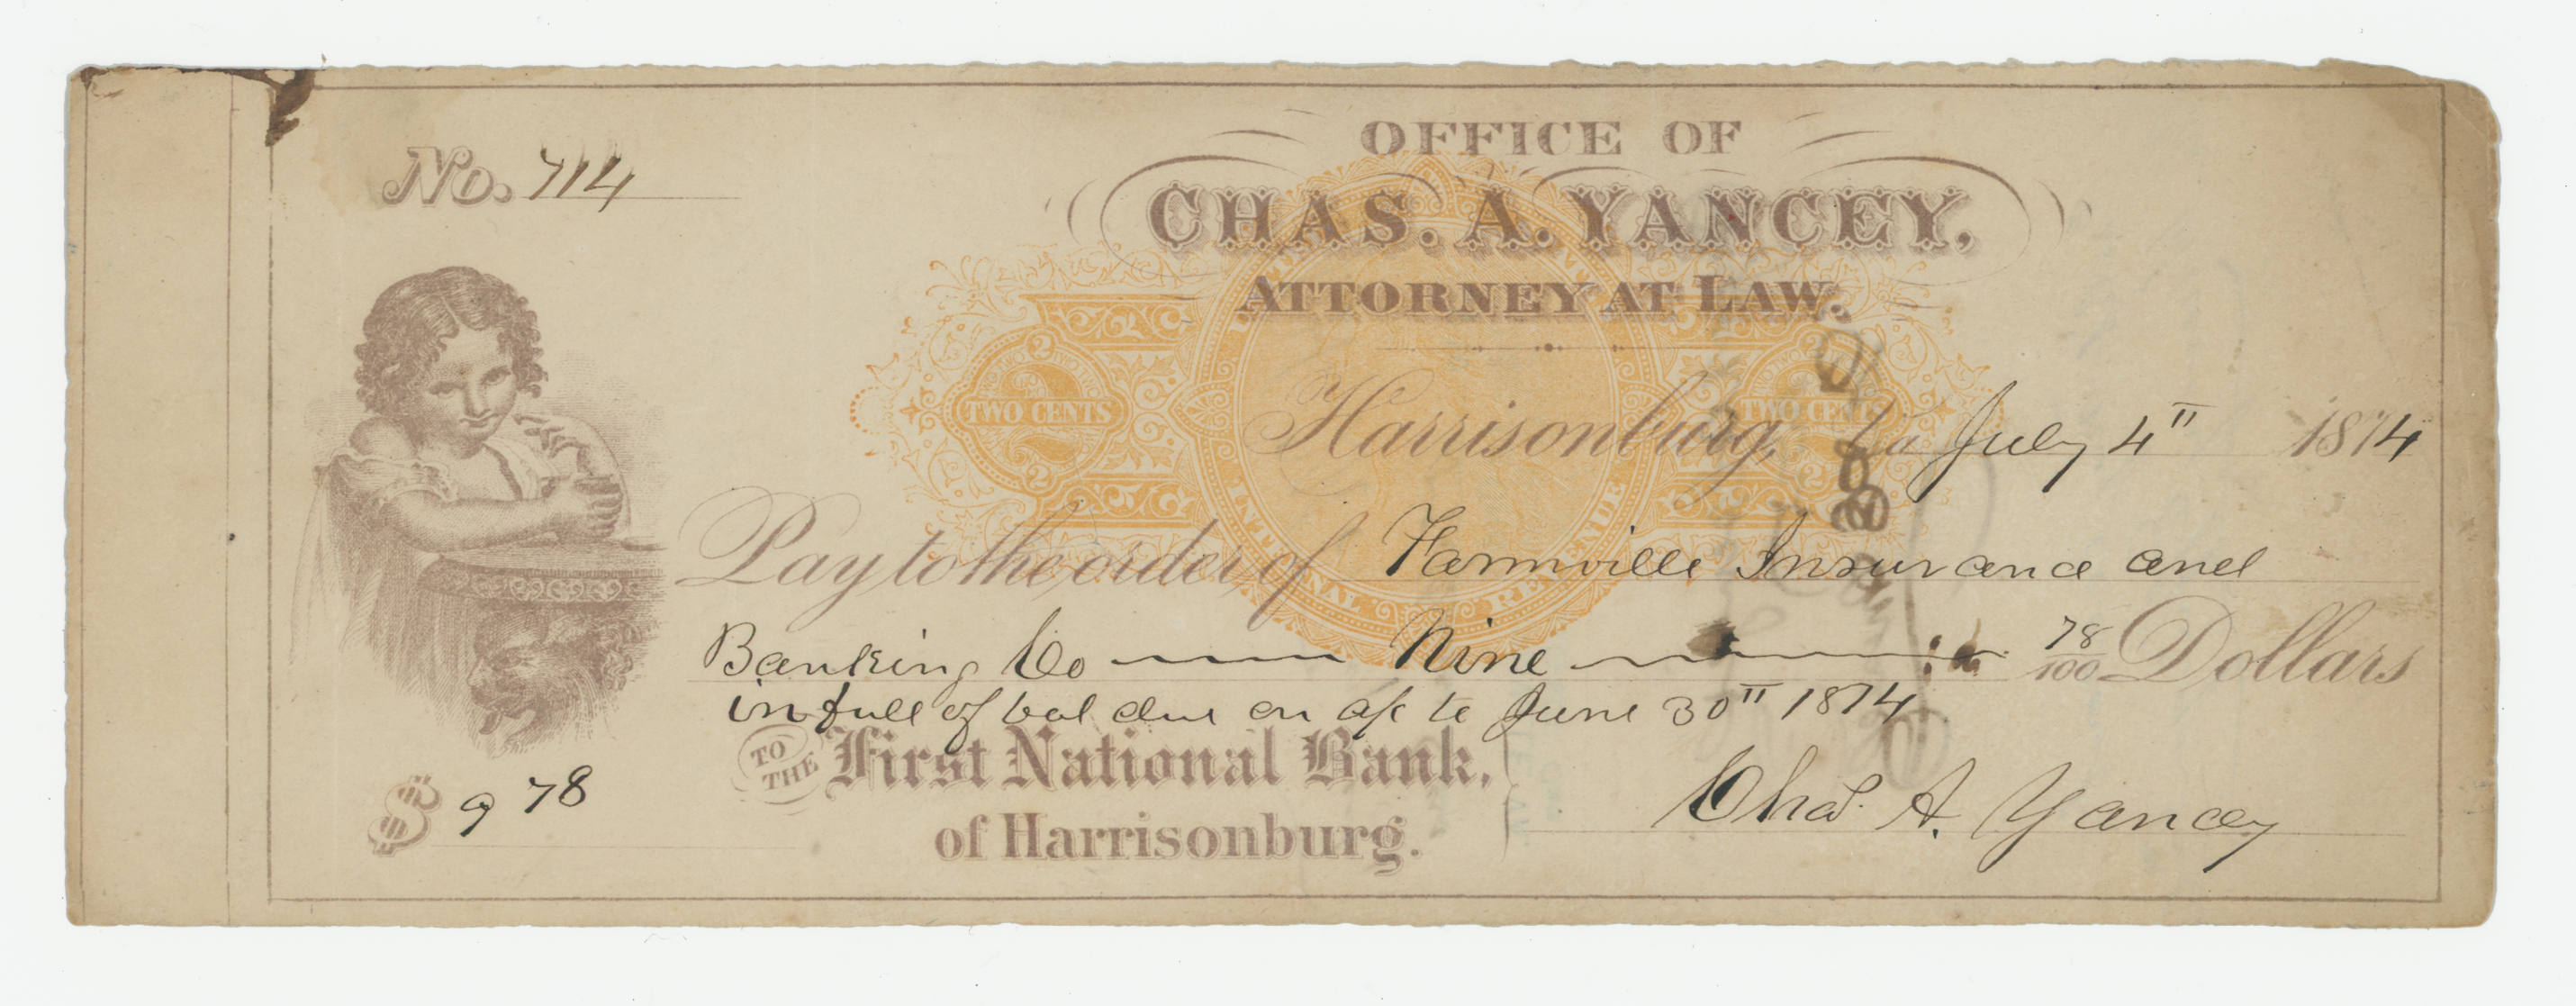 No. 714
OFFICE OF
CHAS. A. YANCEY,
ATTORNEY AT LAW.
Harrisonburg, Va July 4" 1874
2 TWO CENTS 2
2 TWO CENTS 2
INTERNAL REVENUE
Pay to the order of Farmville Insurance and
Banking Co Nine 78/100 Dollars
in full of bal due on a/c to June 30" 1874
TO THE First National Bank,
of Harrisonburg.
$ 9 78
Chas. A. Yancey